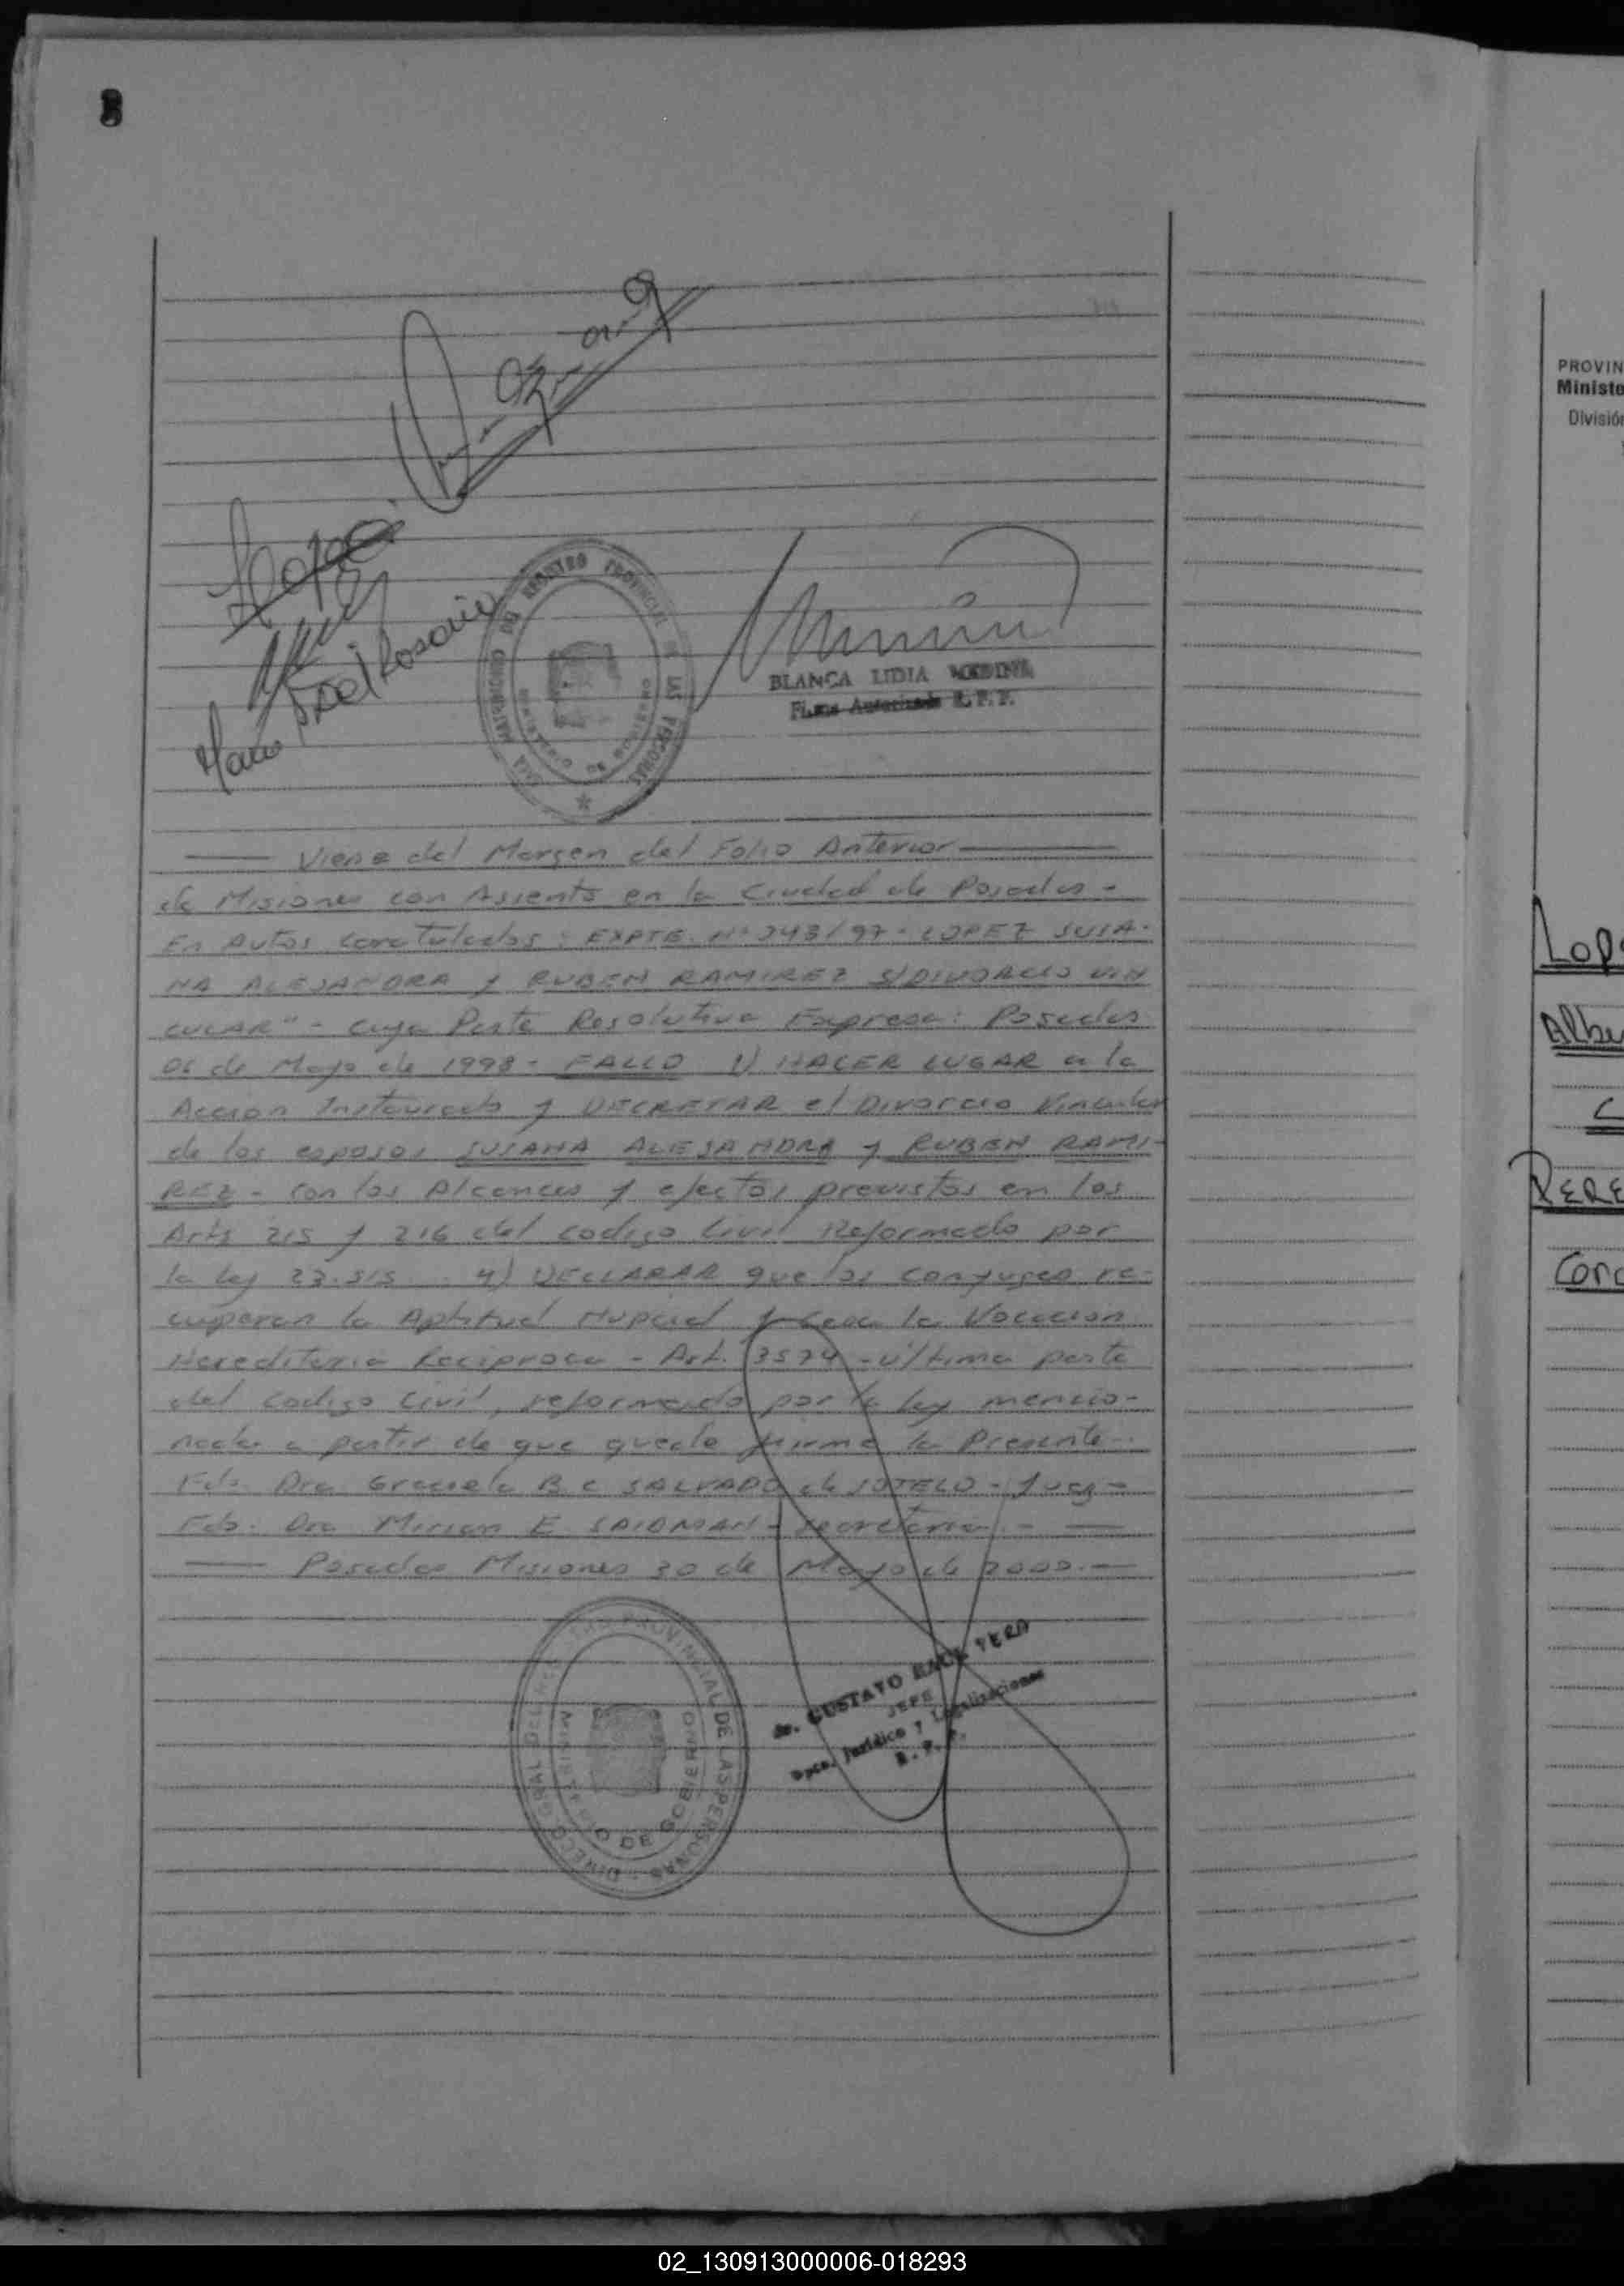 BLANCA LIDIA MEDINA
Firma Autorizada R. P. P.
María del Rosario
—— Viene del Margen del Folio Anterior ——
de Misiones con Asiento en la Ciudad de Posadas -
En Autos Caratulados: EXPTE. Nº 243/97 - LOPEZ SUSA-
NA ALEJANDRA y RUBEN RAMIREZ S/DIVORCIO VIN
CULAR" - Cuya Parte Resolutiva Expresa: Posadas
06 de Mayo de 1998 - FALLO 1) HACER LUGAR a la
Accion Instaurada y DECRETAR el Divorcio Vincular
de los esposos SUSANA ALEJANDRA y RUBEN RAMI-
REZ - con los Alcances y efectos previstos en los
Arts 215 y 216 del codigo Civil Reformado por
la ley 23.515 .. 4) DECLARAR que los conyuges re-
cuperan la Aptitud Nupcial y cesa la Vocacion
Hereditaria Reciproca - Art. 3574 - ultima parte
del Codigo Civil, reformado por la ley mencio-
nada a partir de que quede firme la Presente -
Fdo. Dra Graciela B. C SALVADO de SOTELO - Juez -
Fdo. Dra Miriam E SAIDMAN - Secretaria - —
—— Posadas Misiones 30 de Mayo de 2000. —
DIRECC. GRAL DEL REGISTRO PROVINCIAL DE LAS PERSONAS
MINISTERIO DE GOBIERNO
Dr. GUSTAVO RAUL VERA
JEFE
Dpto. Jurídico y Legalizaciones
R. P. P.
PROVIN
Ministe
División
Lop
Albe
C
PERE
Corc
02_130913000006-018293